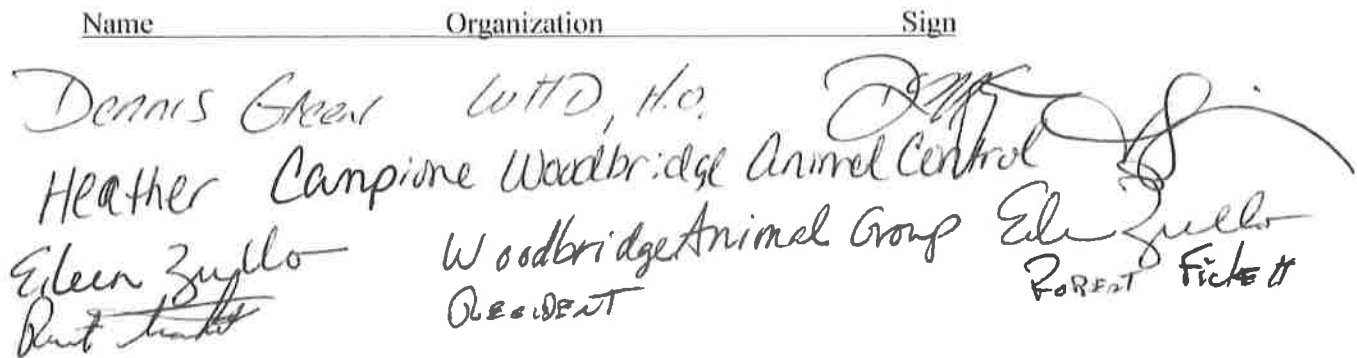 Name Organization Sign
Dennis Green WHD, H.O.
Heather Campione Woodbridge Animal Control
Eileen Zullo Woodbridge Animal Group Eileen Zullo
Resident Forest Fickett